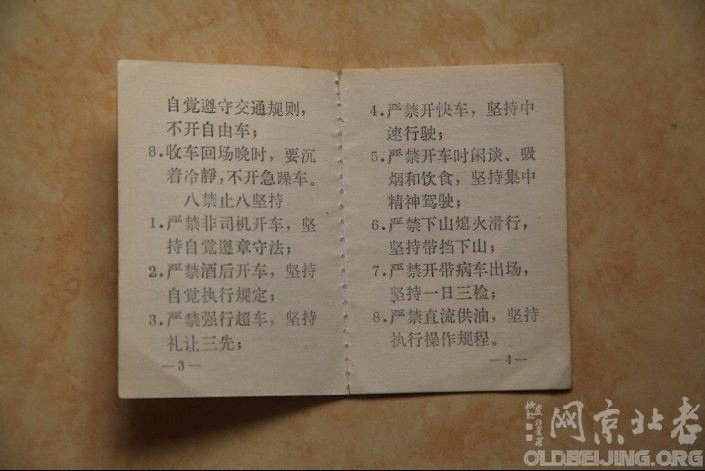 自觉遵守交通规则，
不开自由车；
8.收车回场晚时，要沉
着冷静，不开急躁车。
八禁止八坚持
1.严禁非司机开车，坚
持自觉遵章守法；
2.严禁酒后开车，坚持
自觉执行规定；
3.严禁强行超车，坚持
礼让三先；
—3—
4.严禁开快车，坚持中
速行驶；
5.严禁开车时闲谈、吸
烟和饮食，坚持集中
精神驾驶；
6.严禁下山熄火滑行，
坚持带挡下山；
7.严禁开带病车出场，
坚持一日三检；
8.严禁直流供油，坚持
执行操作规程。
—4—
网京北老
OLDBEIJING.ORG